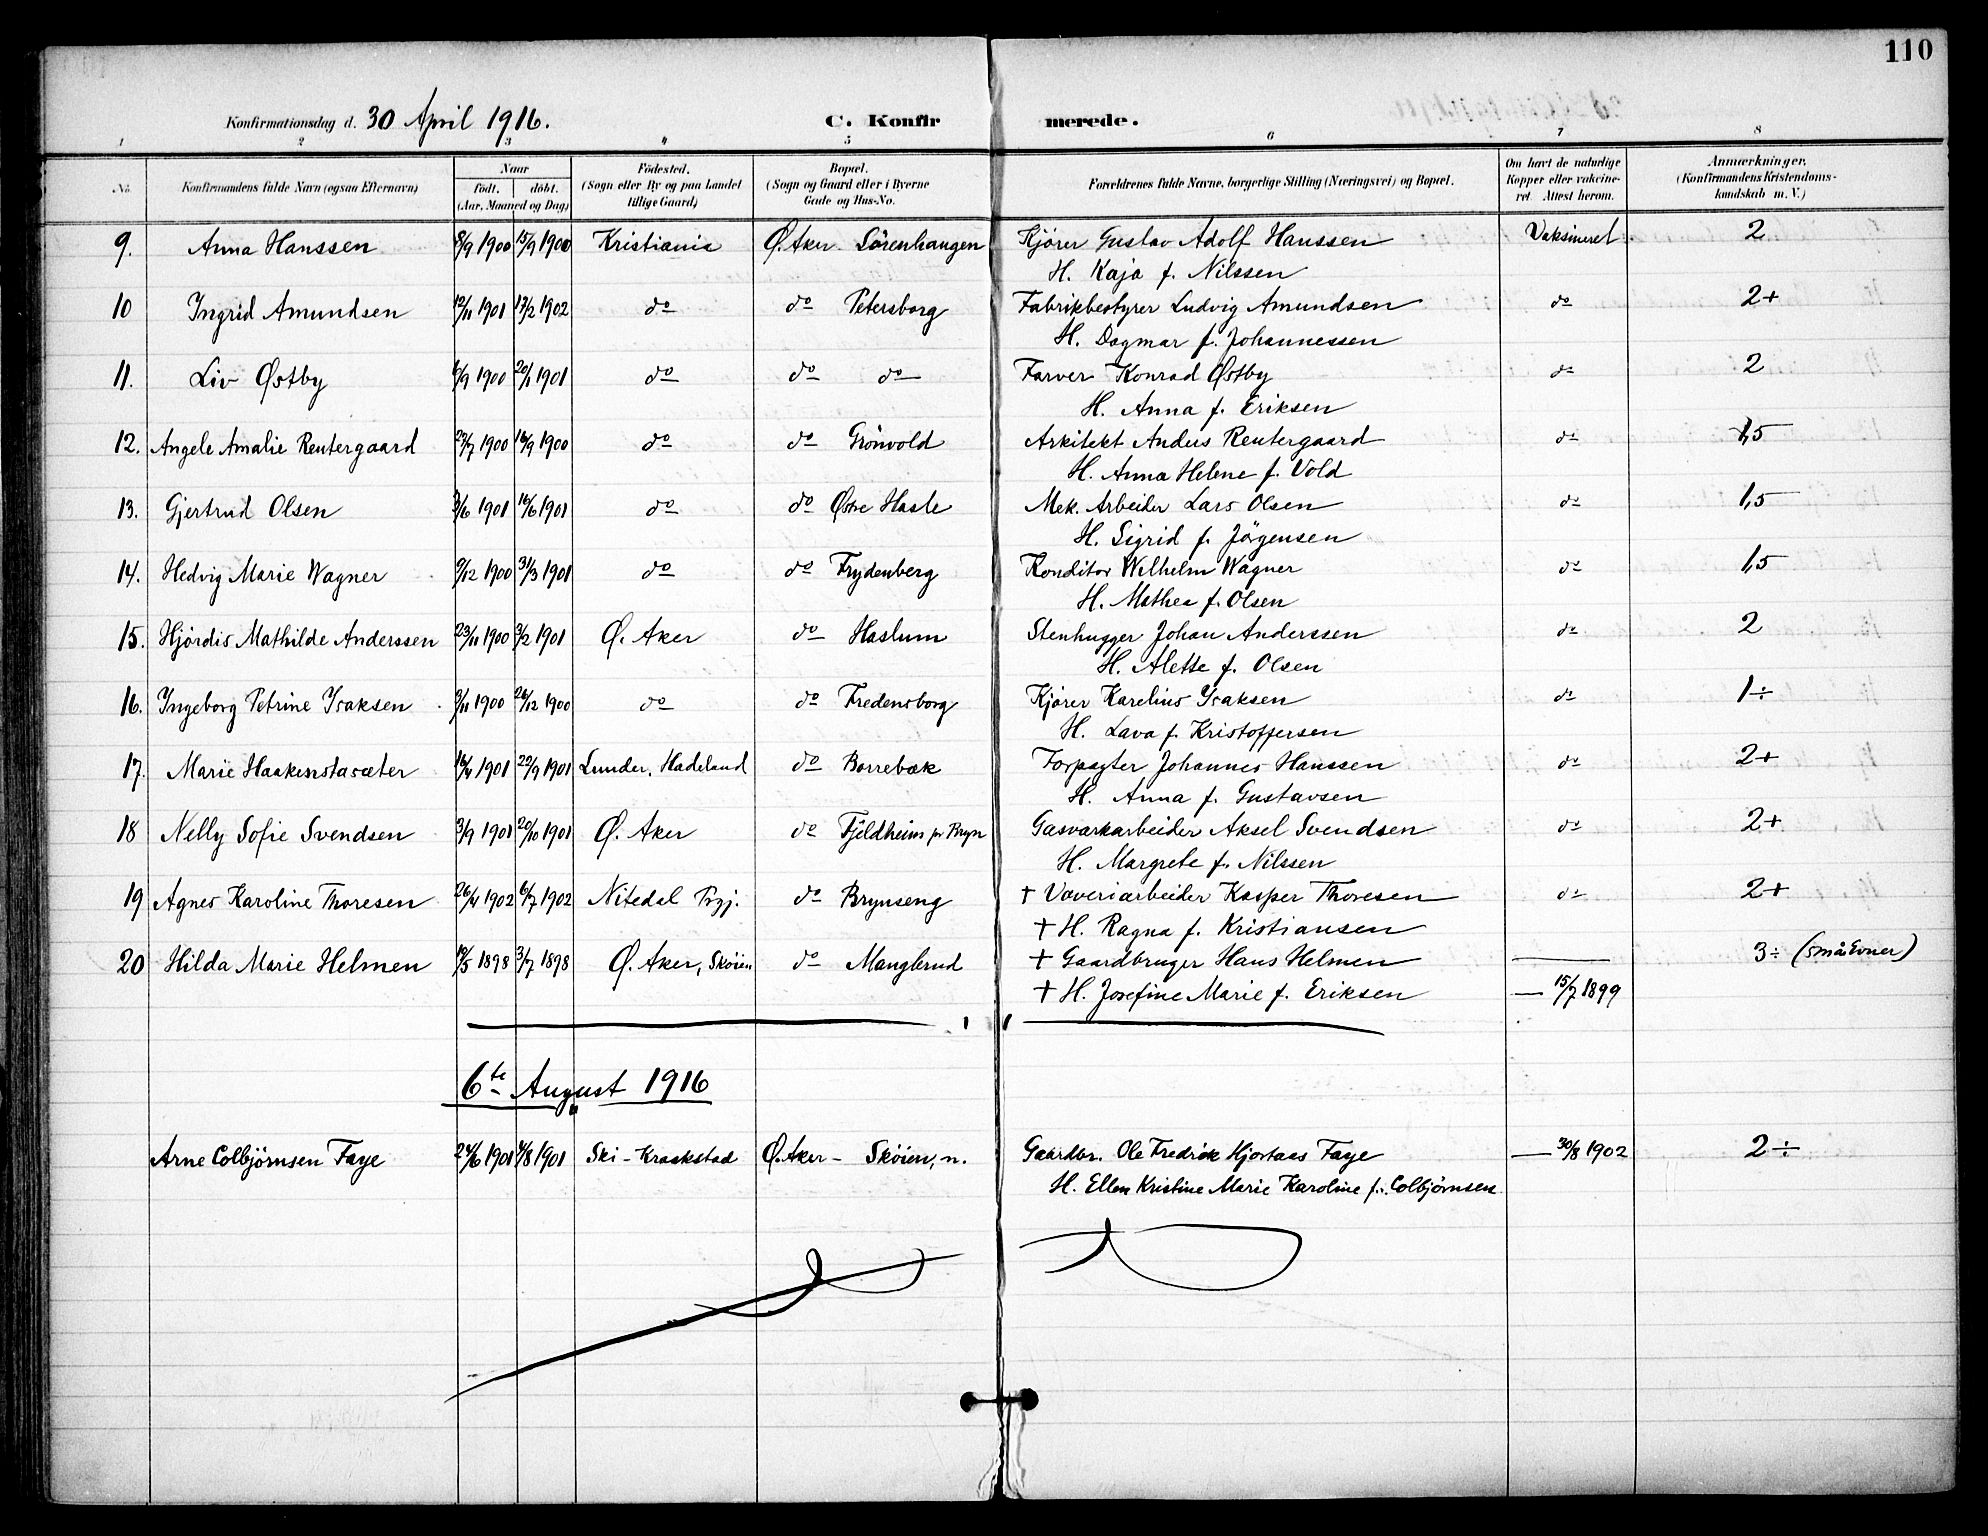 110
Konfirmationsdag d. 30 April 1916. C. Konfirmerede.
1 2 3 4 5 6 7 8
No. Konfirmandens fulde Navn (ogsaa Efternavn) Naar födt. döbt. (Aar, Maaned og Dag) Födested. (Sogn eller By og paa Landet tillige Gaard) Bopæl. (Sogn og Gaard eller i Byerne Gade og Hus-No. Forældrenes fulde Navne, borgerlige Stilling (Næringsvei) og Bopæl. Om havt de naturlige Kopper eller vakcineret. Attest herom. Anmærkninger. (Konfirmandens Kristendomskundskab m. V.)
9. Anna Hanssen 8/9 1900 15/9 1900 Kristiania Ø. Aker Sörenhaugen Kjörer Gustav Adolf Hanssen Vaksineret 2
H. Kaja f. Nilssen
10 Ingrid Amundsen 12/11 1901 13/2 1902 do do Petersborg Fabrikbestyrer Ludvig Amundsen do 2+
H. Dagmar f. Johannessen
11. Liv Østby 6/9 1900 20/1 1901 do do do Farver Konrad Østby do 2
H. Anna f. Eriksen
12. Angele Amalie Reutergaard 27/7 1900 16/9 1900 do do Grönvold Arkitekt Anders Reutergaard do 1,5
H. Anna Helene f. Vold
13. Gjertrud Olsen 3/6 1901 16/6 1901 do do Østre Hasle Mek. Arbeider Lars Olsen do 1,5
H. Sigrid f. Jörgensen
14. Hedvig Marie Wagner 9/12 1900 31/3 1901 do do Frydenberg Konditor Wilhelm Wagner do 1,5
H. Mathea f. Olsen
15. Hjördis Mathilde Anderssen 23/11 1900 3/2 1901 Ø. Aker do Haslum Stenhugger Johan Anderssen do 2
H. Alette f. Olsen
16. Ingeborg Petrine Isaksen 3/11 1900 26/12 1900 do do Fredensborg Kjörer Karelius Isaksen do 1÷
H. Lava f. Kristoffersen
17. Marie Haakenstasæter 16/4 1901 29/9 1901 Lunder, Hadeland do Borrebæk Forpagter Johannes Hanssen do 2+
H. Anna f. Gustavsen
18 Nelly Sofie Svendsen 3/9 1901 20/10 1901 Ø. Aker do Fjeldheim pr Bryn Gasværkarbeider Aksel Svendsen do 2+
H. Margrete f. Nilssen
19 Agnes Karoline Thoresen 26/4 1902 6/7 1902 Nitedal Prgj. do Brynseng + Væveriarbeider Kasper Thoresen do 2+
+ H. Ragna f. Kristiansen
20 Hilda Marie Helmen 12/5 1898 3/7 1898 Ø. Aker, Sköien do Manglerud + Gaardbruger Hans Helmen — 3÷ (små Evner)
+ H. Josefine Marie f. Eriksen — 15/7 1899
6te August 1916
Arne Colbjörnsen Faye 24/6 1901 4/8 1901 Ski - Kraakstad Ø. Aker - Skøien, n. Gaardbr. Ole Fredrik Hjortaas Faye — 30/8 1902 2÷
H. Ellen Kristine Marie Karoline f. Colbjørnsen